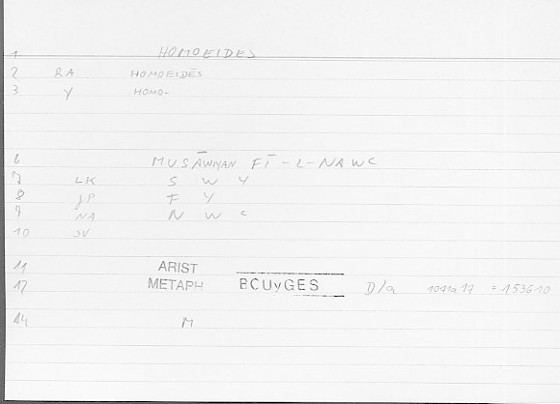 1 HOMOEIDES
2 RA HOMOEIDĒS
3 Y HOMO-
6 MUSĀWIYAN FĪ-L-NAWC
7 LK S W Y
8 JP F Y
9 NA N W C
10 SV
11 ARIST
12 METAPH BCUyGES D/a = 1536 10
14 M